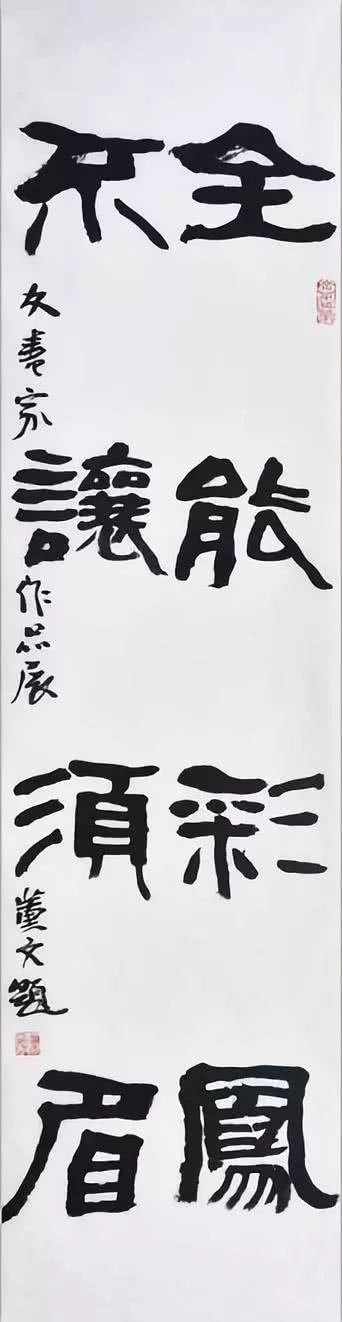 全能彩鳳
不讓須眉
女書家作品展
董文題